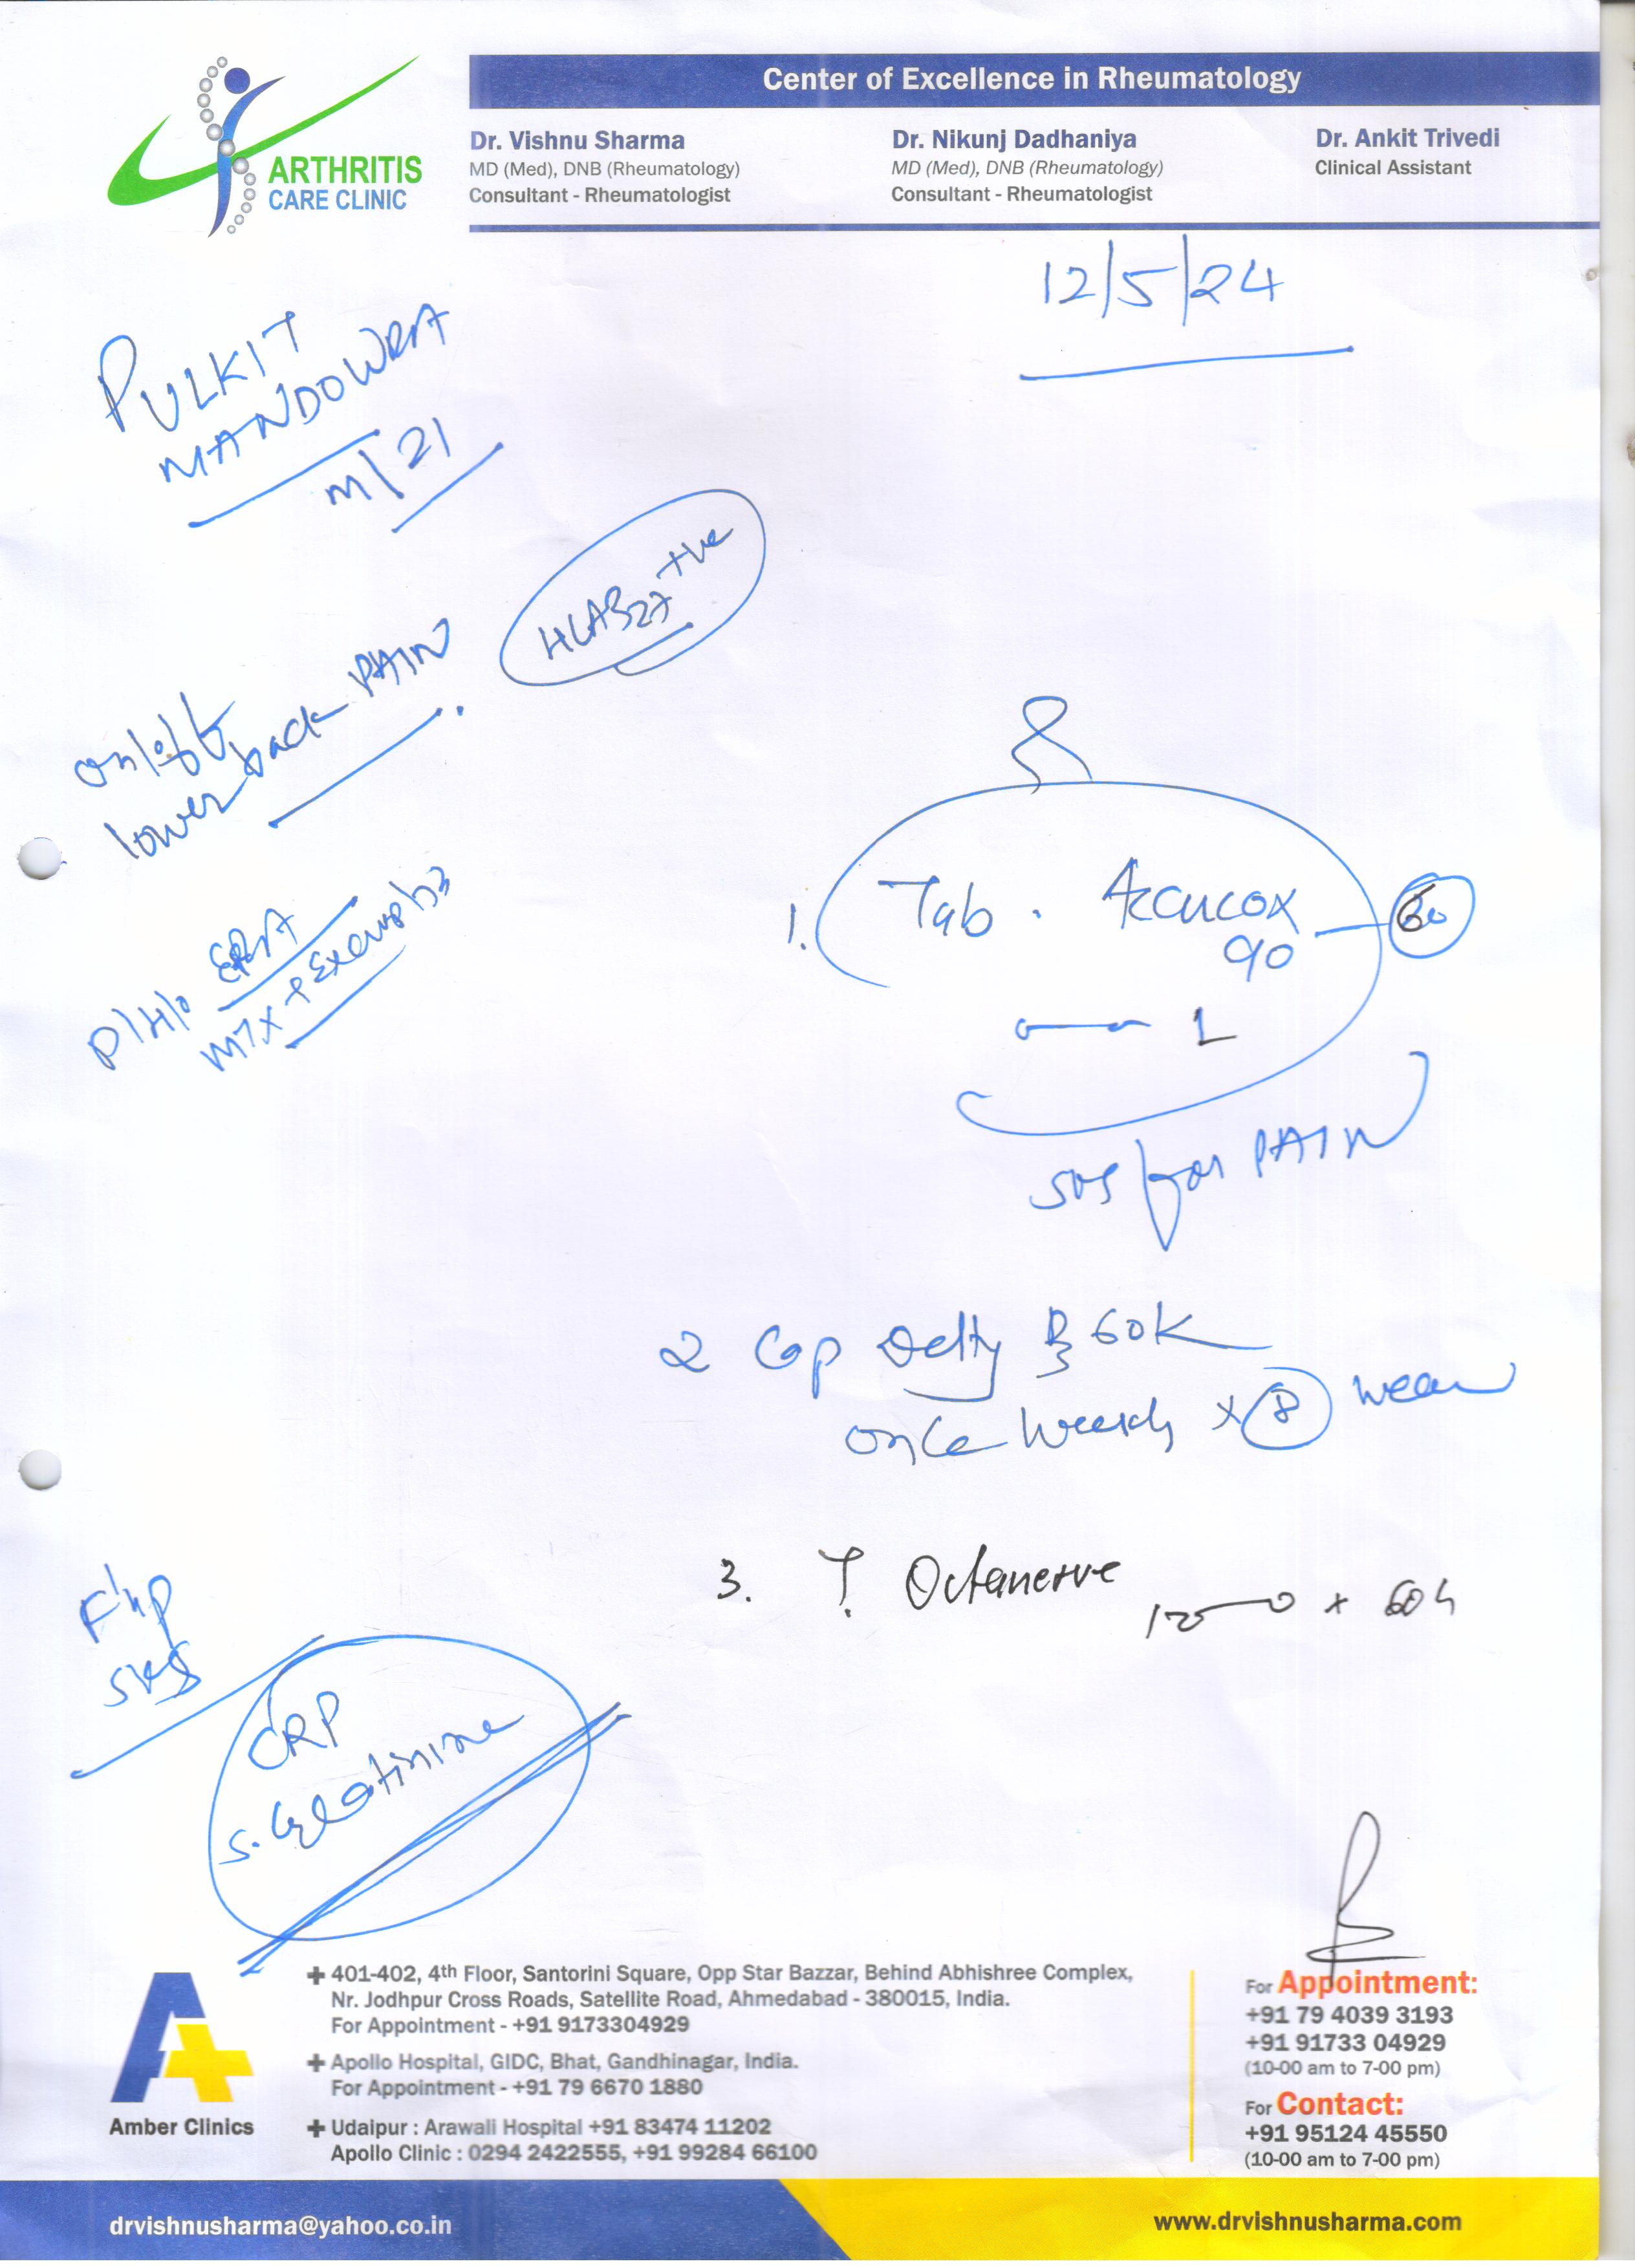 ARTHRITIS
CARE CLINIC
Center of Excellence in Rheumatology
Dr. Vishnu Sharma
MD (Med), DNB (Rheumatology)
Consultant - Rheumatologist
Dr. Nikunj Dadhaniya
MD (Med), DNB (Rheumatology)
Consultant - Rheumatologist
Dr. Ankit Trivedi
Clinical Assistant
12/5/24
PULKIT
MANDOWRA
M/21
HLAB27 +ve
on/off
lower back PAIN
P/H/o ERA
MTX +
1. Tab. Accucox
90 — 60
1
SOS for PAIN
2 Cap 60K
once weekly x 8 week
3. T. Octanerve
x 60
CRP
S. Creatinine
Amber Clinics
401-402, 4th Floor, Santorini Square, Opp Star Bazzar, Behind Abhishree Complex,
Nr. Jodhpur Cross Roads, Satellite Road, Ahmedabad - 380015, India.
For Appointment - +91 9173304929
Apollo Hospital, GIDC, Bhat, Gandhinagar, India.
For Appointment - +91 79 6670 1880
Udaipur : Arawali Hospital +91 83474 11202
Apollo Clinic : 0294 2422555, +91 99284 66100
For Appointment:
+91 79 4039 3193
+91 91733 04929
(10-00 am to 7-00 pm)
For Contact:
+91 95124 45550
(10-00 am to 7-00 pm)
drvishnusharma@yahoo.co.in
www.drvishnusharma.com